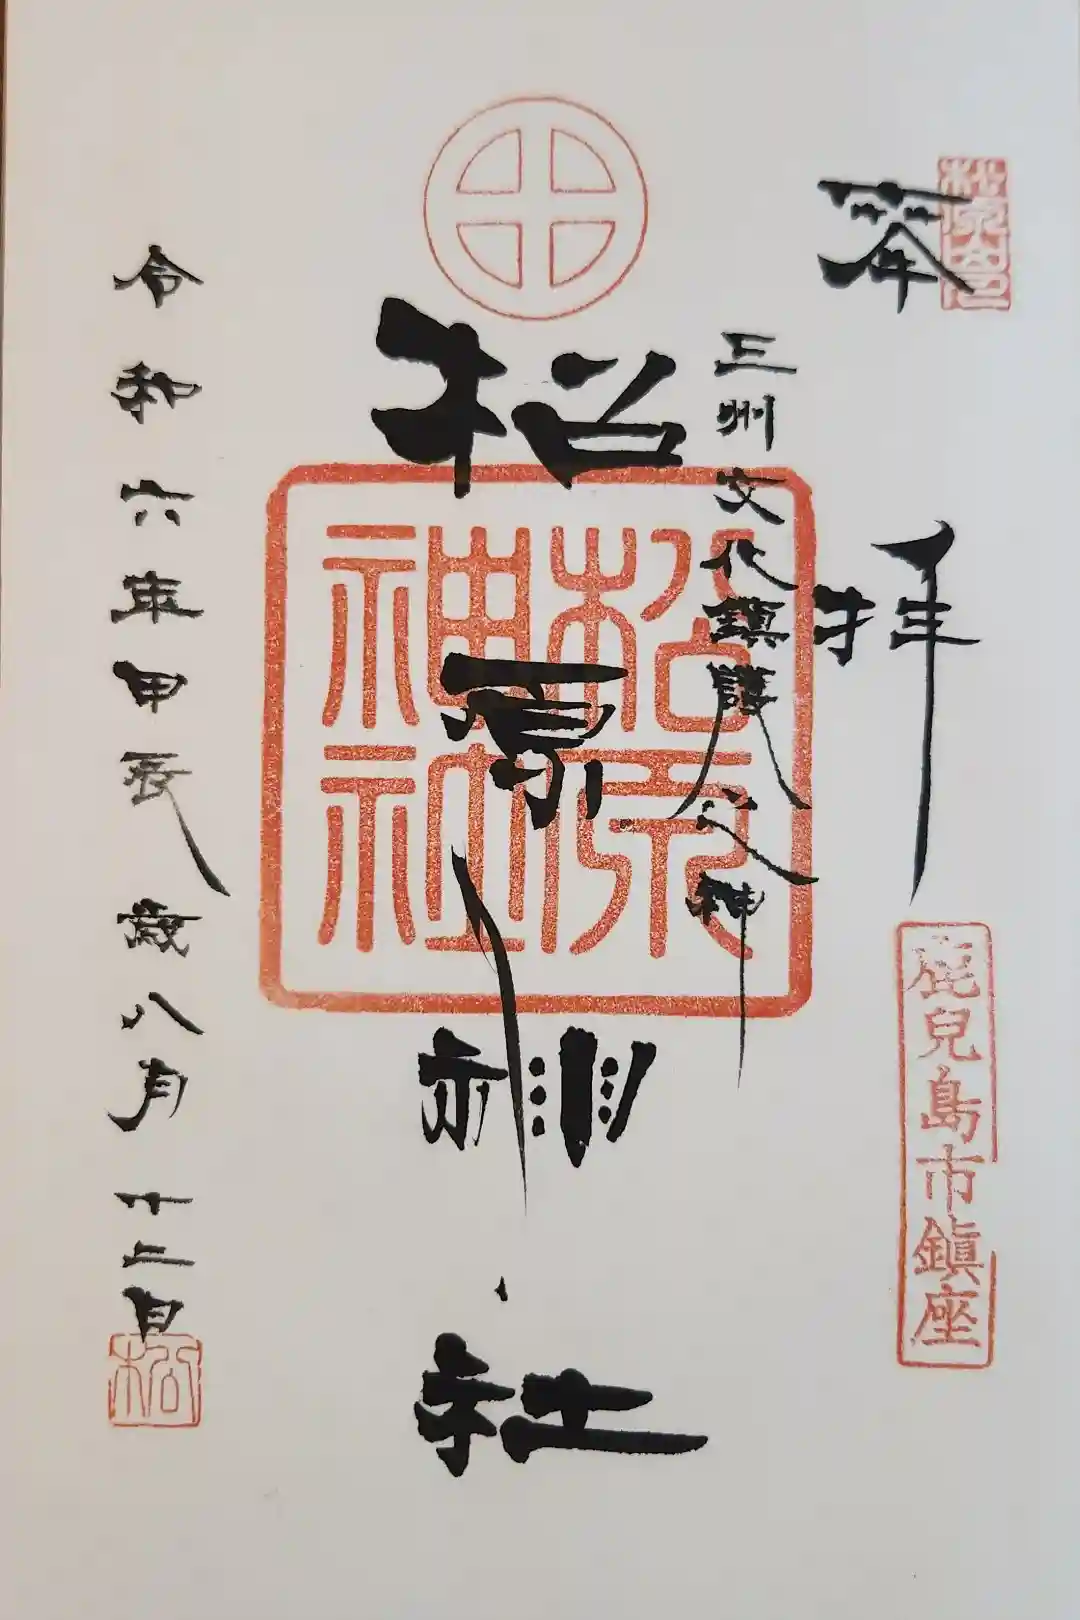 奉拝
鹿兒島市鎮座
三州文化鎮護之神
松原神社
松原神社
令和六年甲辰歳八月廿二日
松